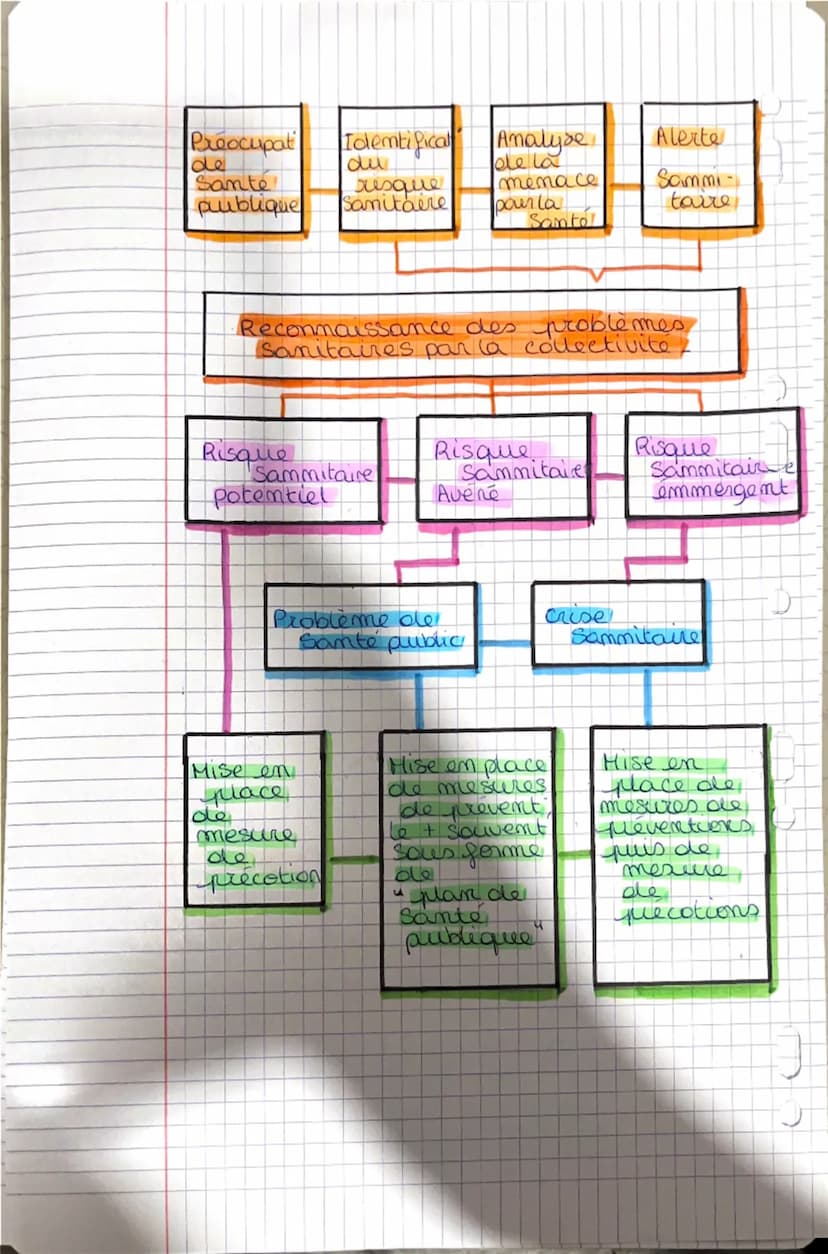 Préocupat°
de
Santé
publique
Identificat°
du
risque
Sanitaire
Analyse
de la
menace
pour la
Santé
Alerte
Sammi-
taire
Reconnaissance des problèmes
sanitaires par la collectivité.
Risque
Sammitaire
potentiel
Risque
Sammitaire
Avéré
Risque
Sammitaire
émmergent
Problème de
Santé public
Crise
Sammitaire
Mise en
place
de
mesure
de
précotion
Mise en place
de mesures
de prévent°,
le + souvent
sous forme
de
" plan de
Santé
publique"
Mise en
place de
mesures de
préventions
puis de
mesure
de
précotions